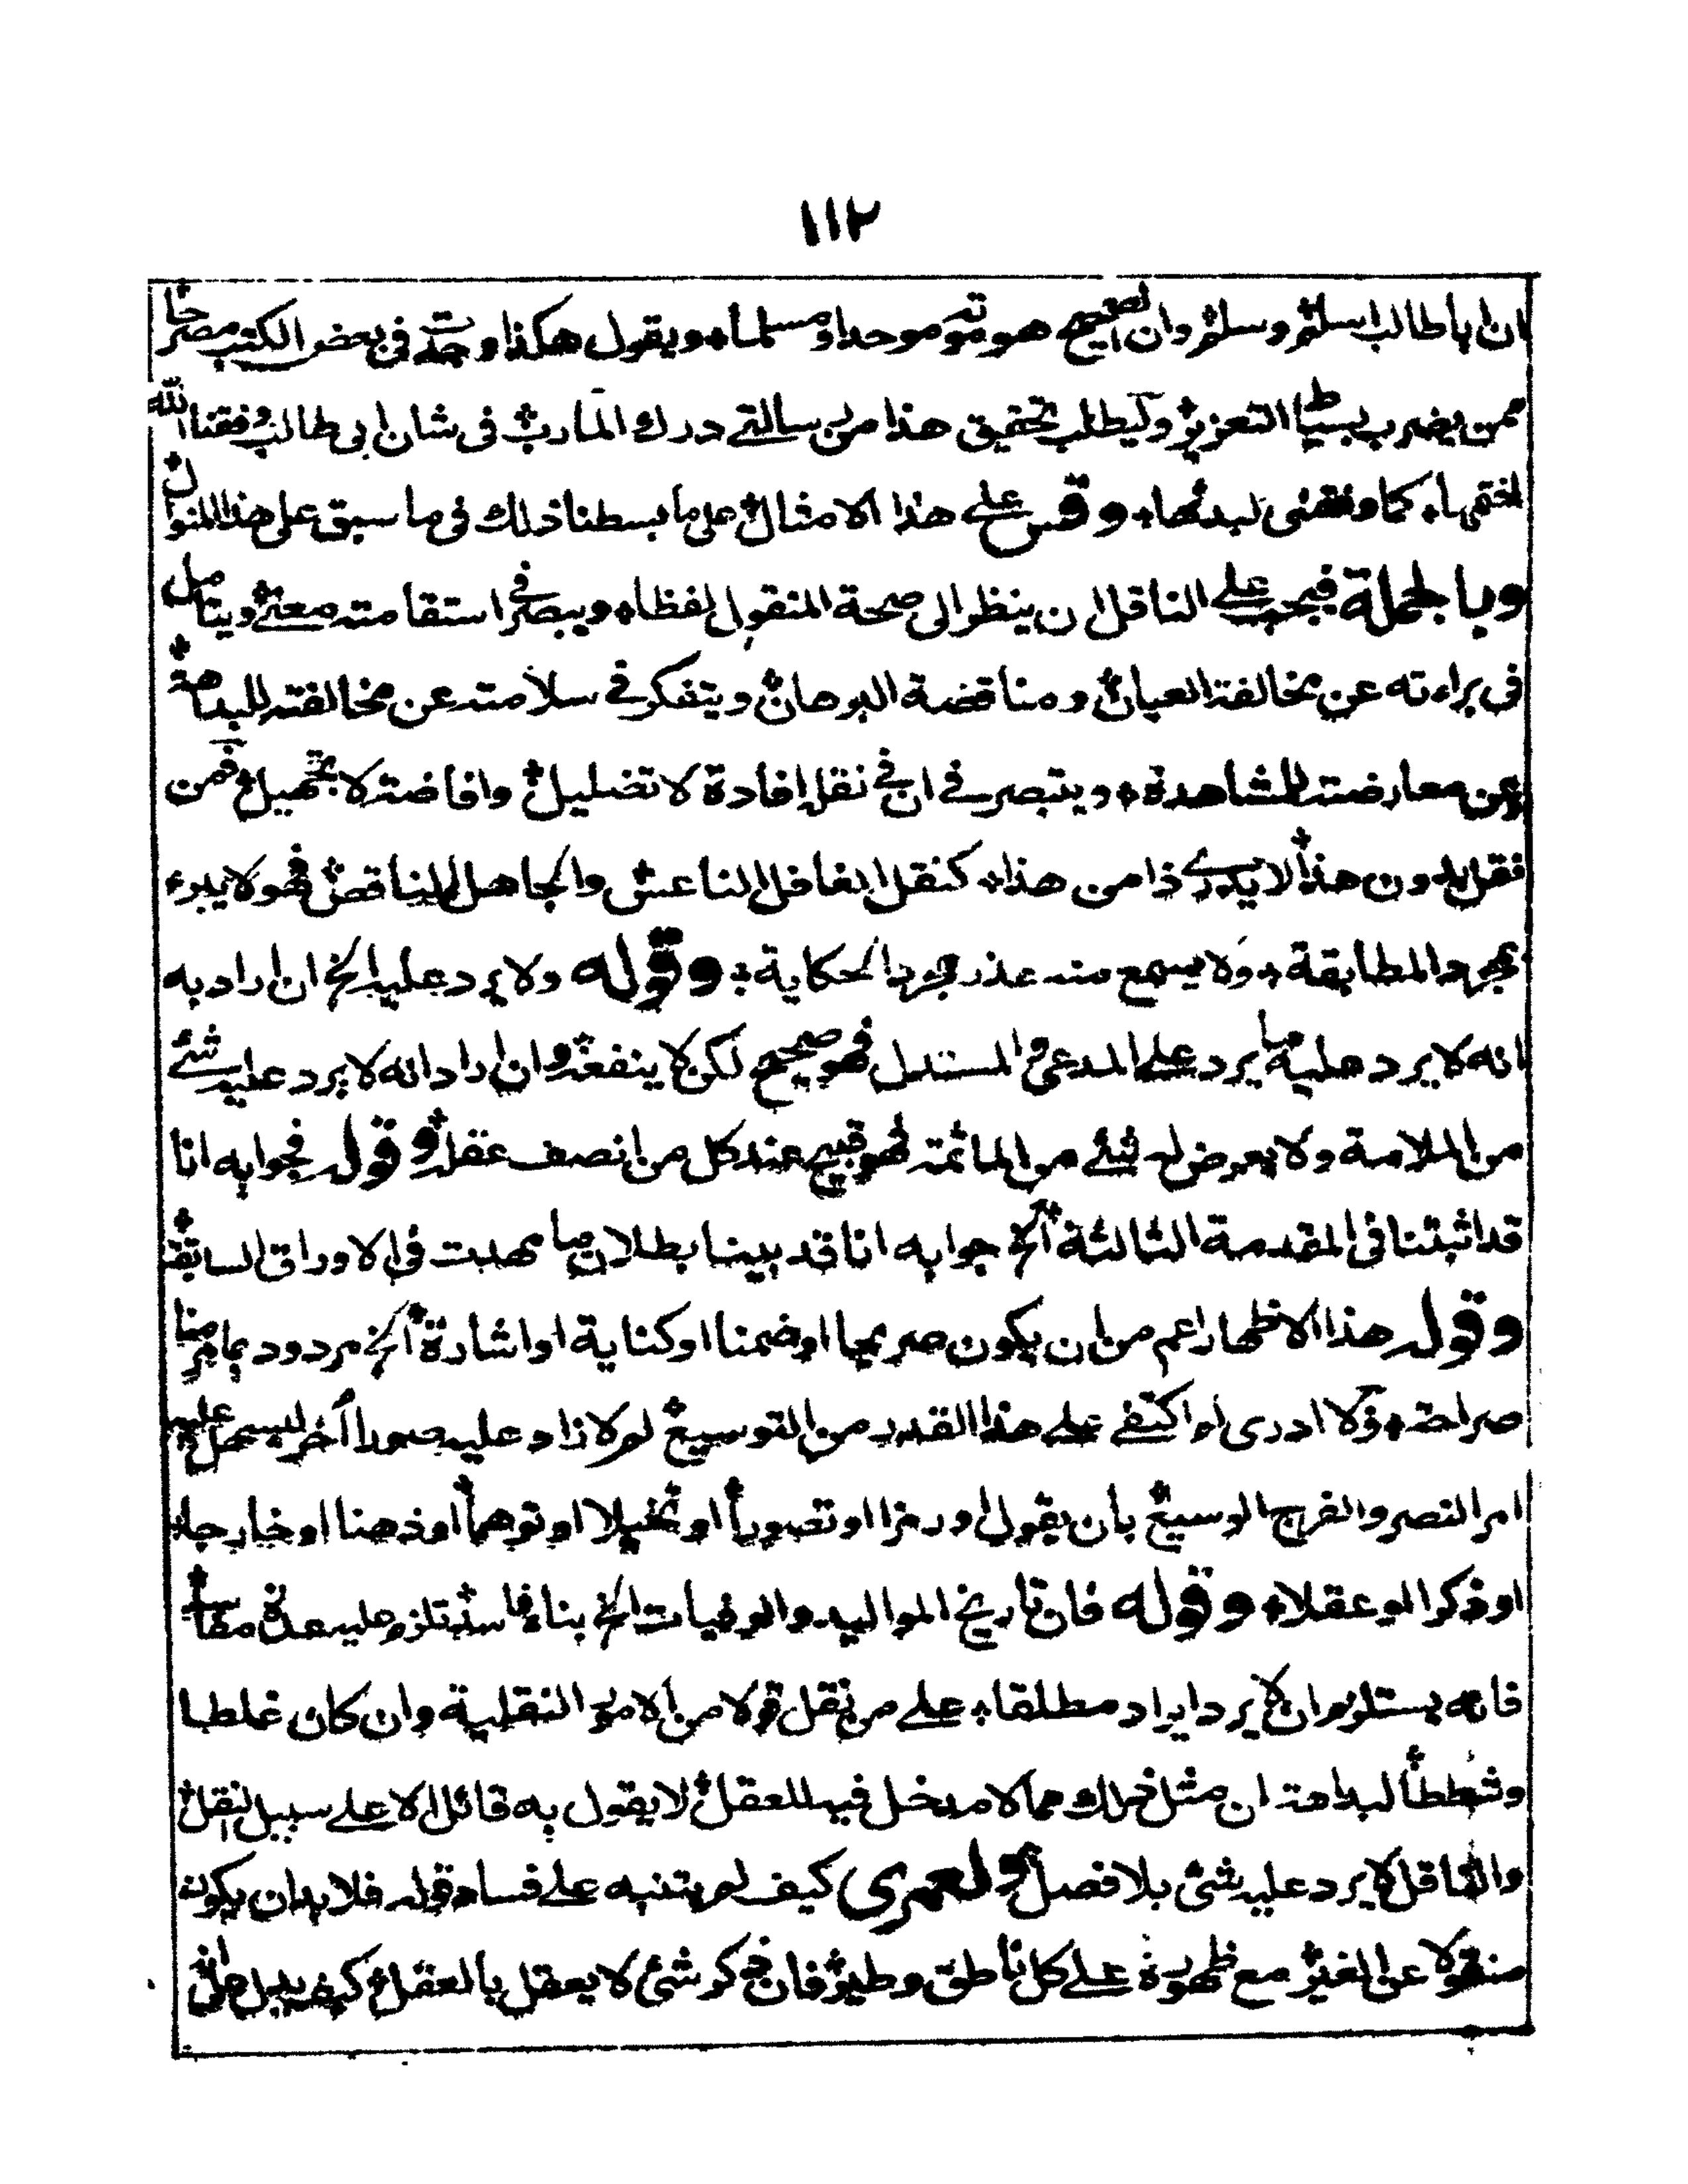 ١١٢
ان اباطالب اسلم وسلم وان الصحيح هو موته موحدا ومسلما ويقول هكذا وجدته في بعض الكتب مصرحا
ممن يضرب بسياط التعزير وليطلب تحقيق هذا من رسالتي درك المآرب في شان ابي طالب وفقنا الله
لختمها كما وفقني لبدئها وقس على هذا الامثال على ما بسطنا ذلك في ما سبق على هذا المنوال
وبالجملة فيجب على الناقل ان ينظر الى صحة المنقول لفظا ويبصر في استقامته معنى ويتامل
في براءته عن مخالفة العيان ومناقضة البرهان ويتفكر في سلامته عن مخالفته للبداهة
وعن معارضته للمشاهدة ويتبصر في ان في نقله افادة لا تضليل وافاضة لا تجهيل فمن
نقل بدون هذا لا يدري ذا من هذا كنقل الغافل الناعس والجاهل المناقض فهو لا يبرء
بمجرد المطابقة ولا يسمع منه عذر مجرد الحكاية وقوله ولا يرد عليه الخ ان اراد به
انه لا يرد عليه ما يرد على المدعي والمستدل فهو صحيح لكن لا ينفعه وان اراد انه لا يرد عليه شئ
من الملامة ولا يعرض له شئ من المأثمة فهو قبيح عند كل من انصف عقله وقوله فجوابه انا
قد اثبتنا في المقدمة الثالثة الخ جوابه انا قد بينا بطلان ما مهدت في الاوراق السابقة
وقوله هذا الاظهار اعم من ان يكون صريحا او ضمنا او كناية او اشارة الخ مردود بما مر منا
صراحة ولا ادري لم اكتفى على هذا القدر من التوسيع لم لا زاد عليه صورا أخر ليسهل عليه
امر النصر والفرج الوسيع بان يقول او رمزا او تصويرا او تخييلا او توهما او ذهنا او خارجا
او ذكرا او عقلا وقوله فان تاريخ المواليد والوفيات الخ بناء فاسد تلزم عليه عدة مفاسد
فانه يستلزم ان لا يرد ايراد مطلقا على من نقل قولا من الامور النقلية وان كان غلطا
وشططا لبداهة ان مثل ذلك مما لا مدخل فيه للعقل لا يقول به قائل الا على سبيل النقل
والناقل لا يرد عليه شئ بلا فصل ولعمري كيف لم يتنبه على فساد قوله فلا بد ان يكون
منقولا عن الغير مع ظهوره على كل ناطق وطير فان ذكر شئ لا يعقل بالعقل كيف يدل على